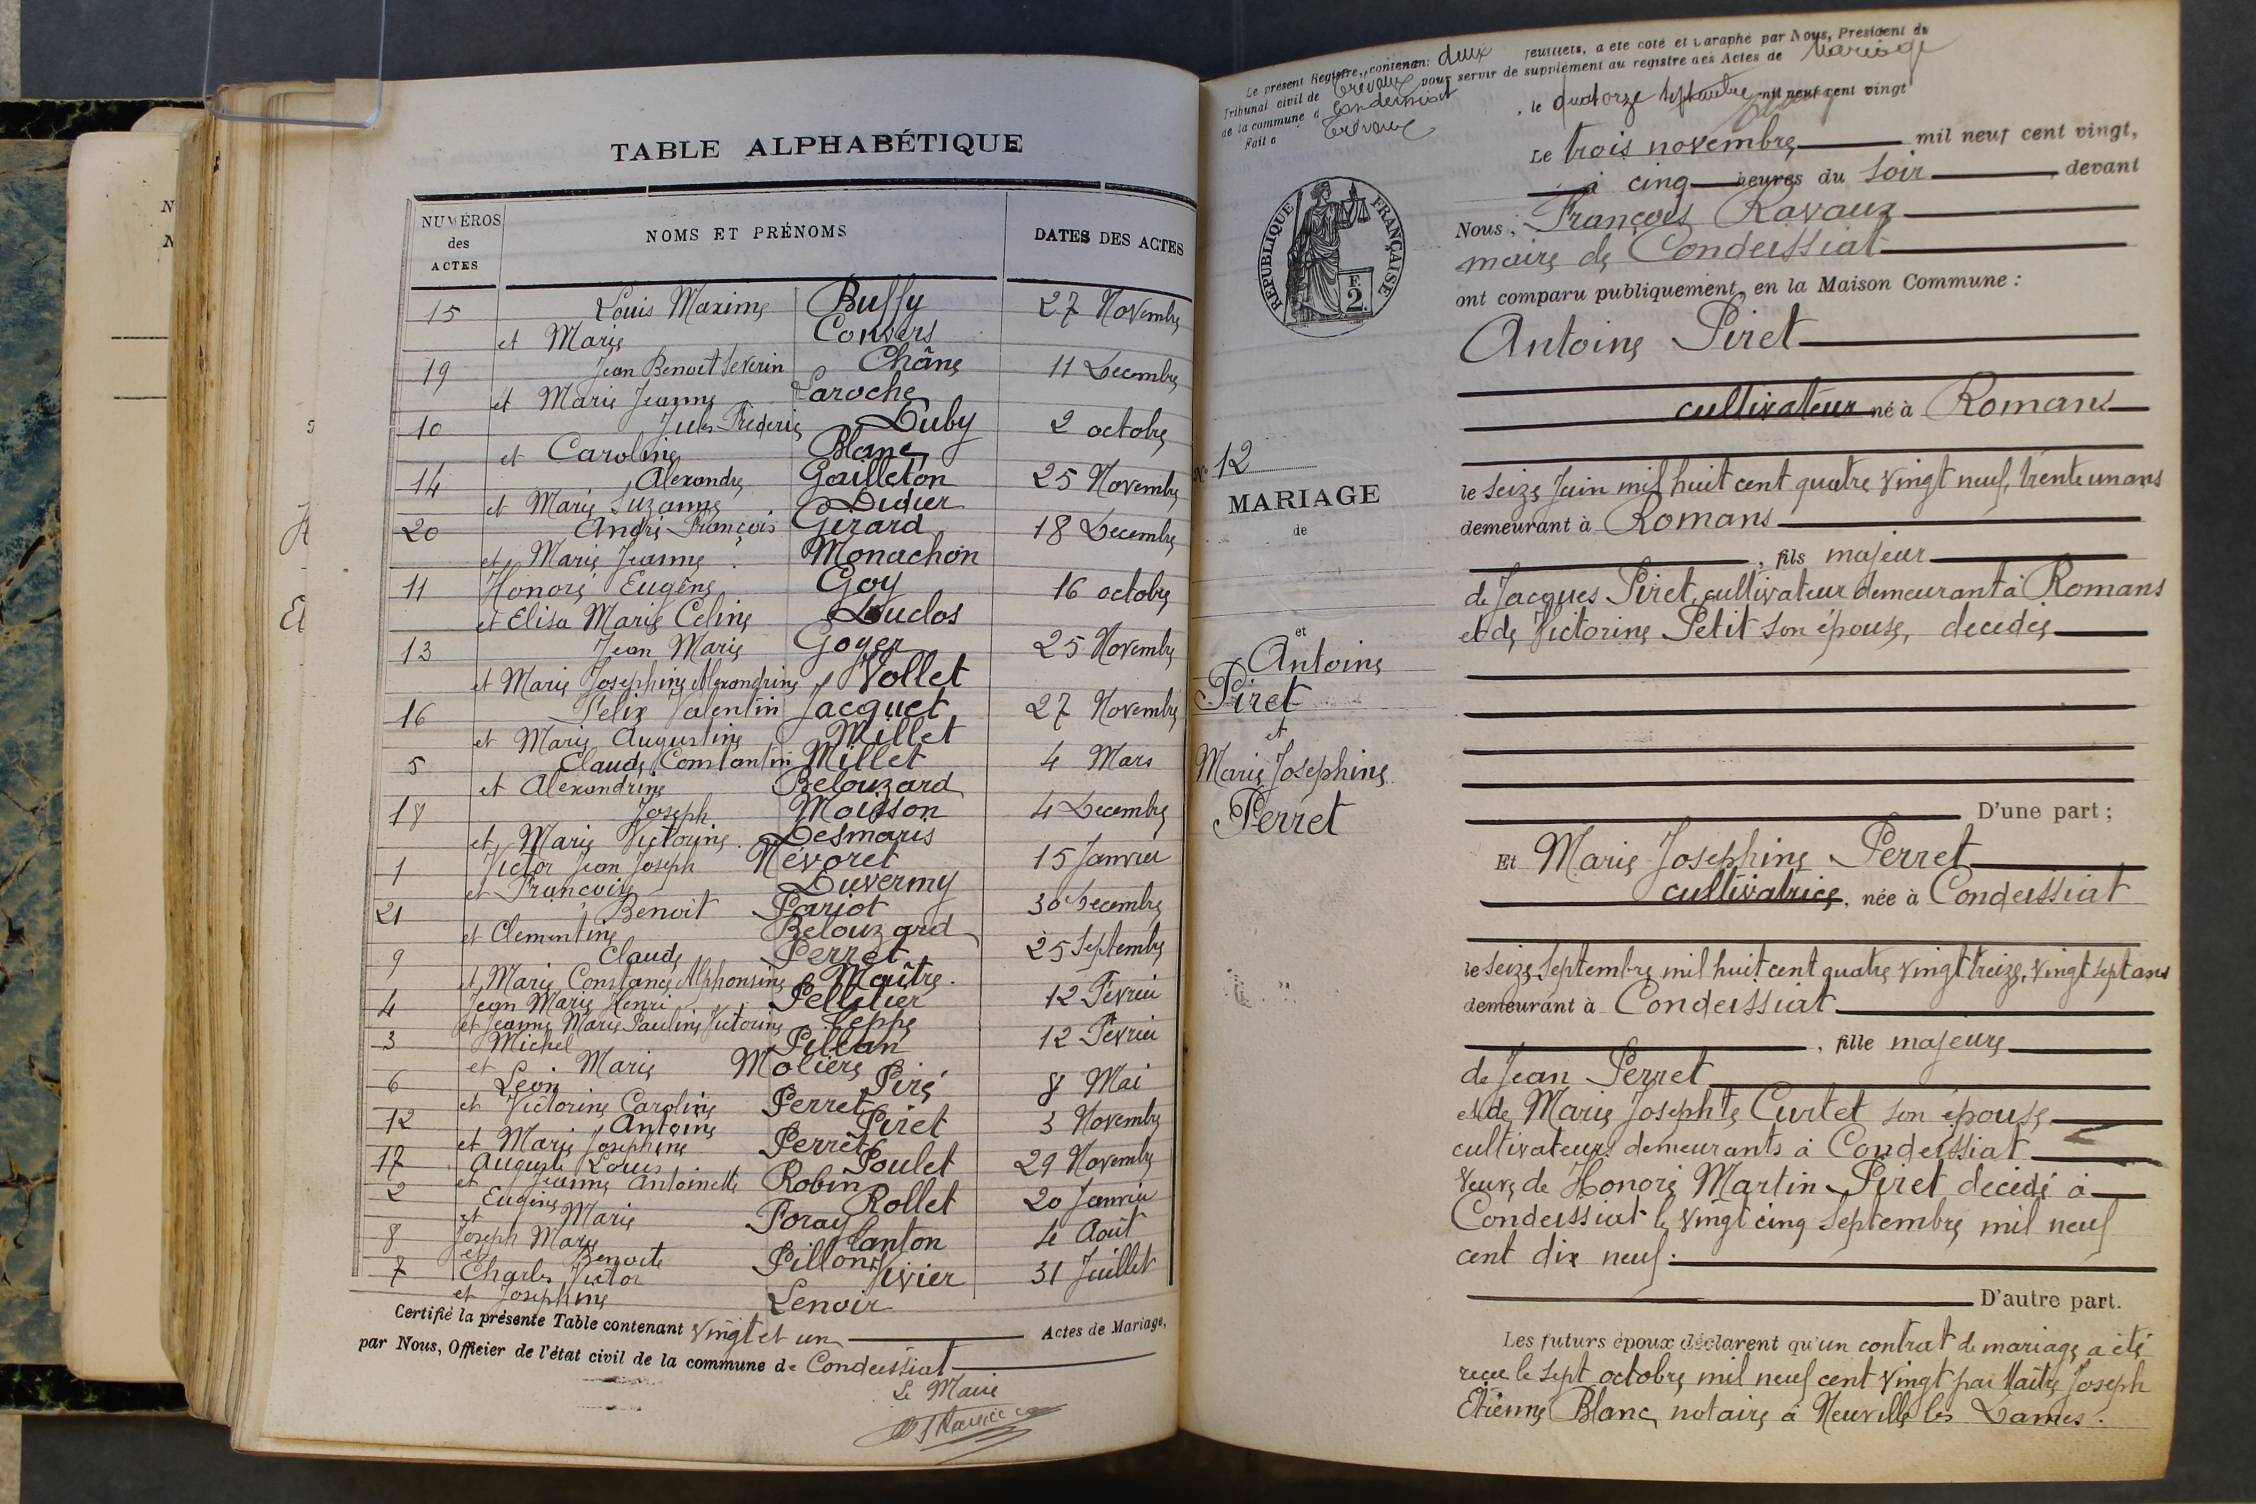 TABLE ALPHABÉTIQUE
NUMÉROS des ACTES
NOMS ET PRÉNOMS
DATES DES ACTES
15 Louis Maxime Buffy 27 Novembre
et Marie Convers
19 Jean Benoit Severin Châne 11 Decembre
et Marie Jeanne Laroche
10 Jules Fréderic Duby 2 octobre
et Caroline Blanc
14 Alexandre Gailleton 25 Novembre
et Marie Suzanne Didier
20 André François Gerard 18 Decembre
et Marie Jeanne Monachon
11 Honoré Eugène Goy 16 octobre
et Elisa Marie Celine Duclos
13 Jean Marie Goyer 25 Novembre
et Marie Josephine Alexandrine Vollet
16 Felix Valentin Jacquet 27 Novembre
et Marie Augustine Millet
5 Claude Constantin Millet 4 Mars
et Alexandrine Belouzard
18 Joseph Moisson 4 Decembre
et Marie Victorine Desmaris
1 Victor Jean Joseph Névoret 15 Janvier
et Françoise Duvermy
21 Benoit Pariot 30 Decembre
et Clementine Belouzard
9 Claude Perret 25 Septembre
et Marie Constance Alphonsine Maître.
4 Jean Marie Henri Pelletier 12 Février
et Jeanne Marie Pauline Victorine Ceppe
3 Michel Pillan 12 Février
et Marie Molière
6 Léon Piré 8 Mai
et Victorine Caroline Perret
12 Antoine Piret 3 Novembre
et Marie Josephine Perret
17 Auguste Louis Poulet 29 Novembre
et Jeanne Antoinette Robin
2 Eugène Rollet 20 Janvier
et Marie Foray
8 Joseph Marie Tanton 4 Août
et Benoite Pillon
7 Charles Victor Vivier 31 Juillet
et Josephine Lenoir
Certifié la présente Table contenant vingt et un Actes de Mariage,
par Nous, Officier de l'état civil de la commune de Condeissiat
Le Maire
Le présent Registre, contenant deux feuillets, a été coté et paraphé par Nous, Président du
Tribunal civil de Trévoux pour servir de supplément au registre des Actes de Mariage
de la commune d Condeissiat
Fait à Trévoux, le quatorze Septembre mil neuf cent vingt
Le trois novembre mil neuf cent vingt,
à cinq heures du soir, devant
Nous, François Ravaux
maire de Condeissiat
ont comparu publiquement, en la Maison Commune :
RÉPUBLIQUE FRANÇAISE
F. 2.
Antoine Piret
cultivateur né à Romans
le seize Juin mil huit cent quatre vingt neuf, trente un ans
demeurant à Romans
, fils majeur
de Jacques Piret, cultivateur demeurant à Romans
et de Victorine Petit son épouse, decedée
N° 12
MARIAGE
de
et
Antoine
Piret
et
Marie Josephine
Perret
D'une part ;
Et Marie Josephine Perret
cultivatrice, née à Condeissiat
le seize Septembre mil huit cent quatre vingt treize, vingt sept ans
demeurant à Condeissiat
, fille majeure
de Jean Perret
et de Marie Josephte Curtet son épouse
cultivateurs demeurants à Condeissiat
Veuve de Honoré Martin Piret decédé à
Condeissiat le vingt cinq Septembre mil neuf
cent dix neuf.
D'autre part.
Les futurs époux déclarent qu'un contrat de mariage a été
reçu le sept octobre mil neuf cent vingt par Maître Joseph
Etienne Blanc notaire à Neuville les Dames.